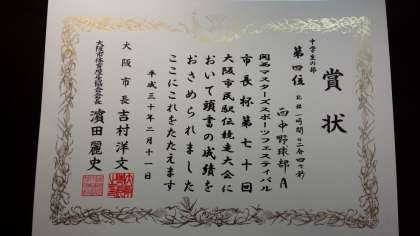 賞状
中学生の部
第四位
記録 一時間
西中野球部A
関西マスターズスポーツフェスティバル
市長杯第七十回
大阪市民駅伝競走大会に
おいて頭書の成績を
おさめられました
ここにこれをたたえます
平成三十年二月十一日
大阪市長 吉村洋文
大阪市体育厚生協会会長 濱田麗史